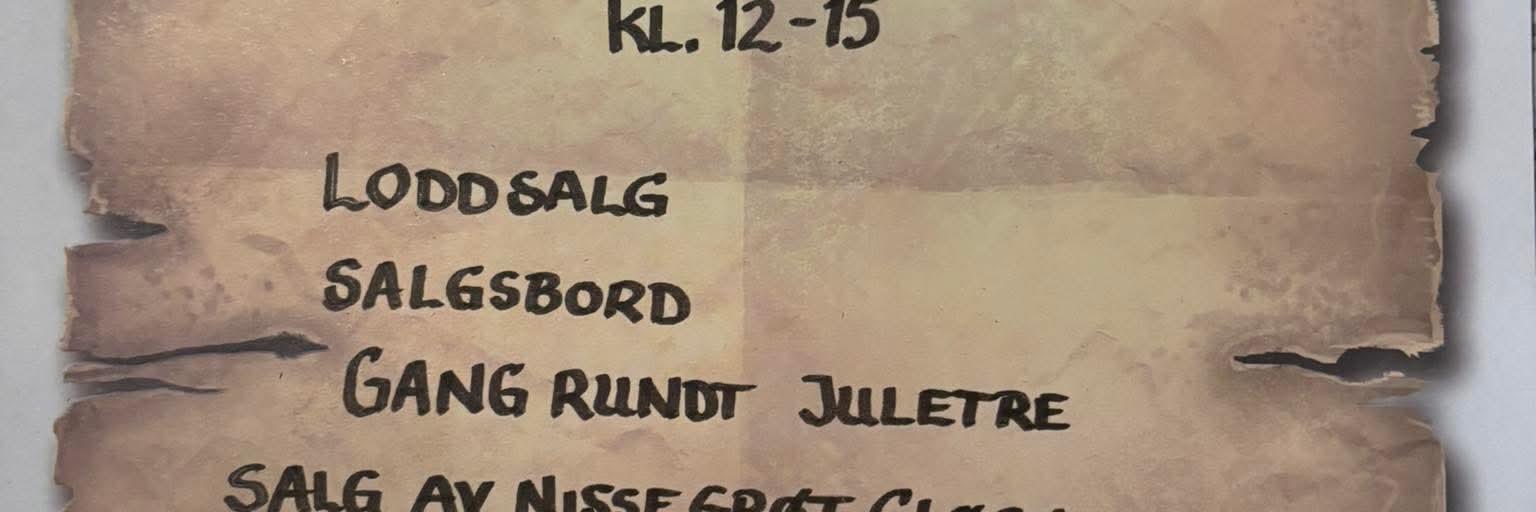 KL. 12-15
LODDSALG
SALGSBORD
GANG RUNDT JULETRE
SALG AV NISSEGRØT